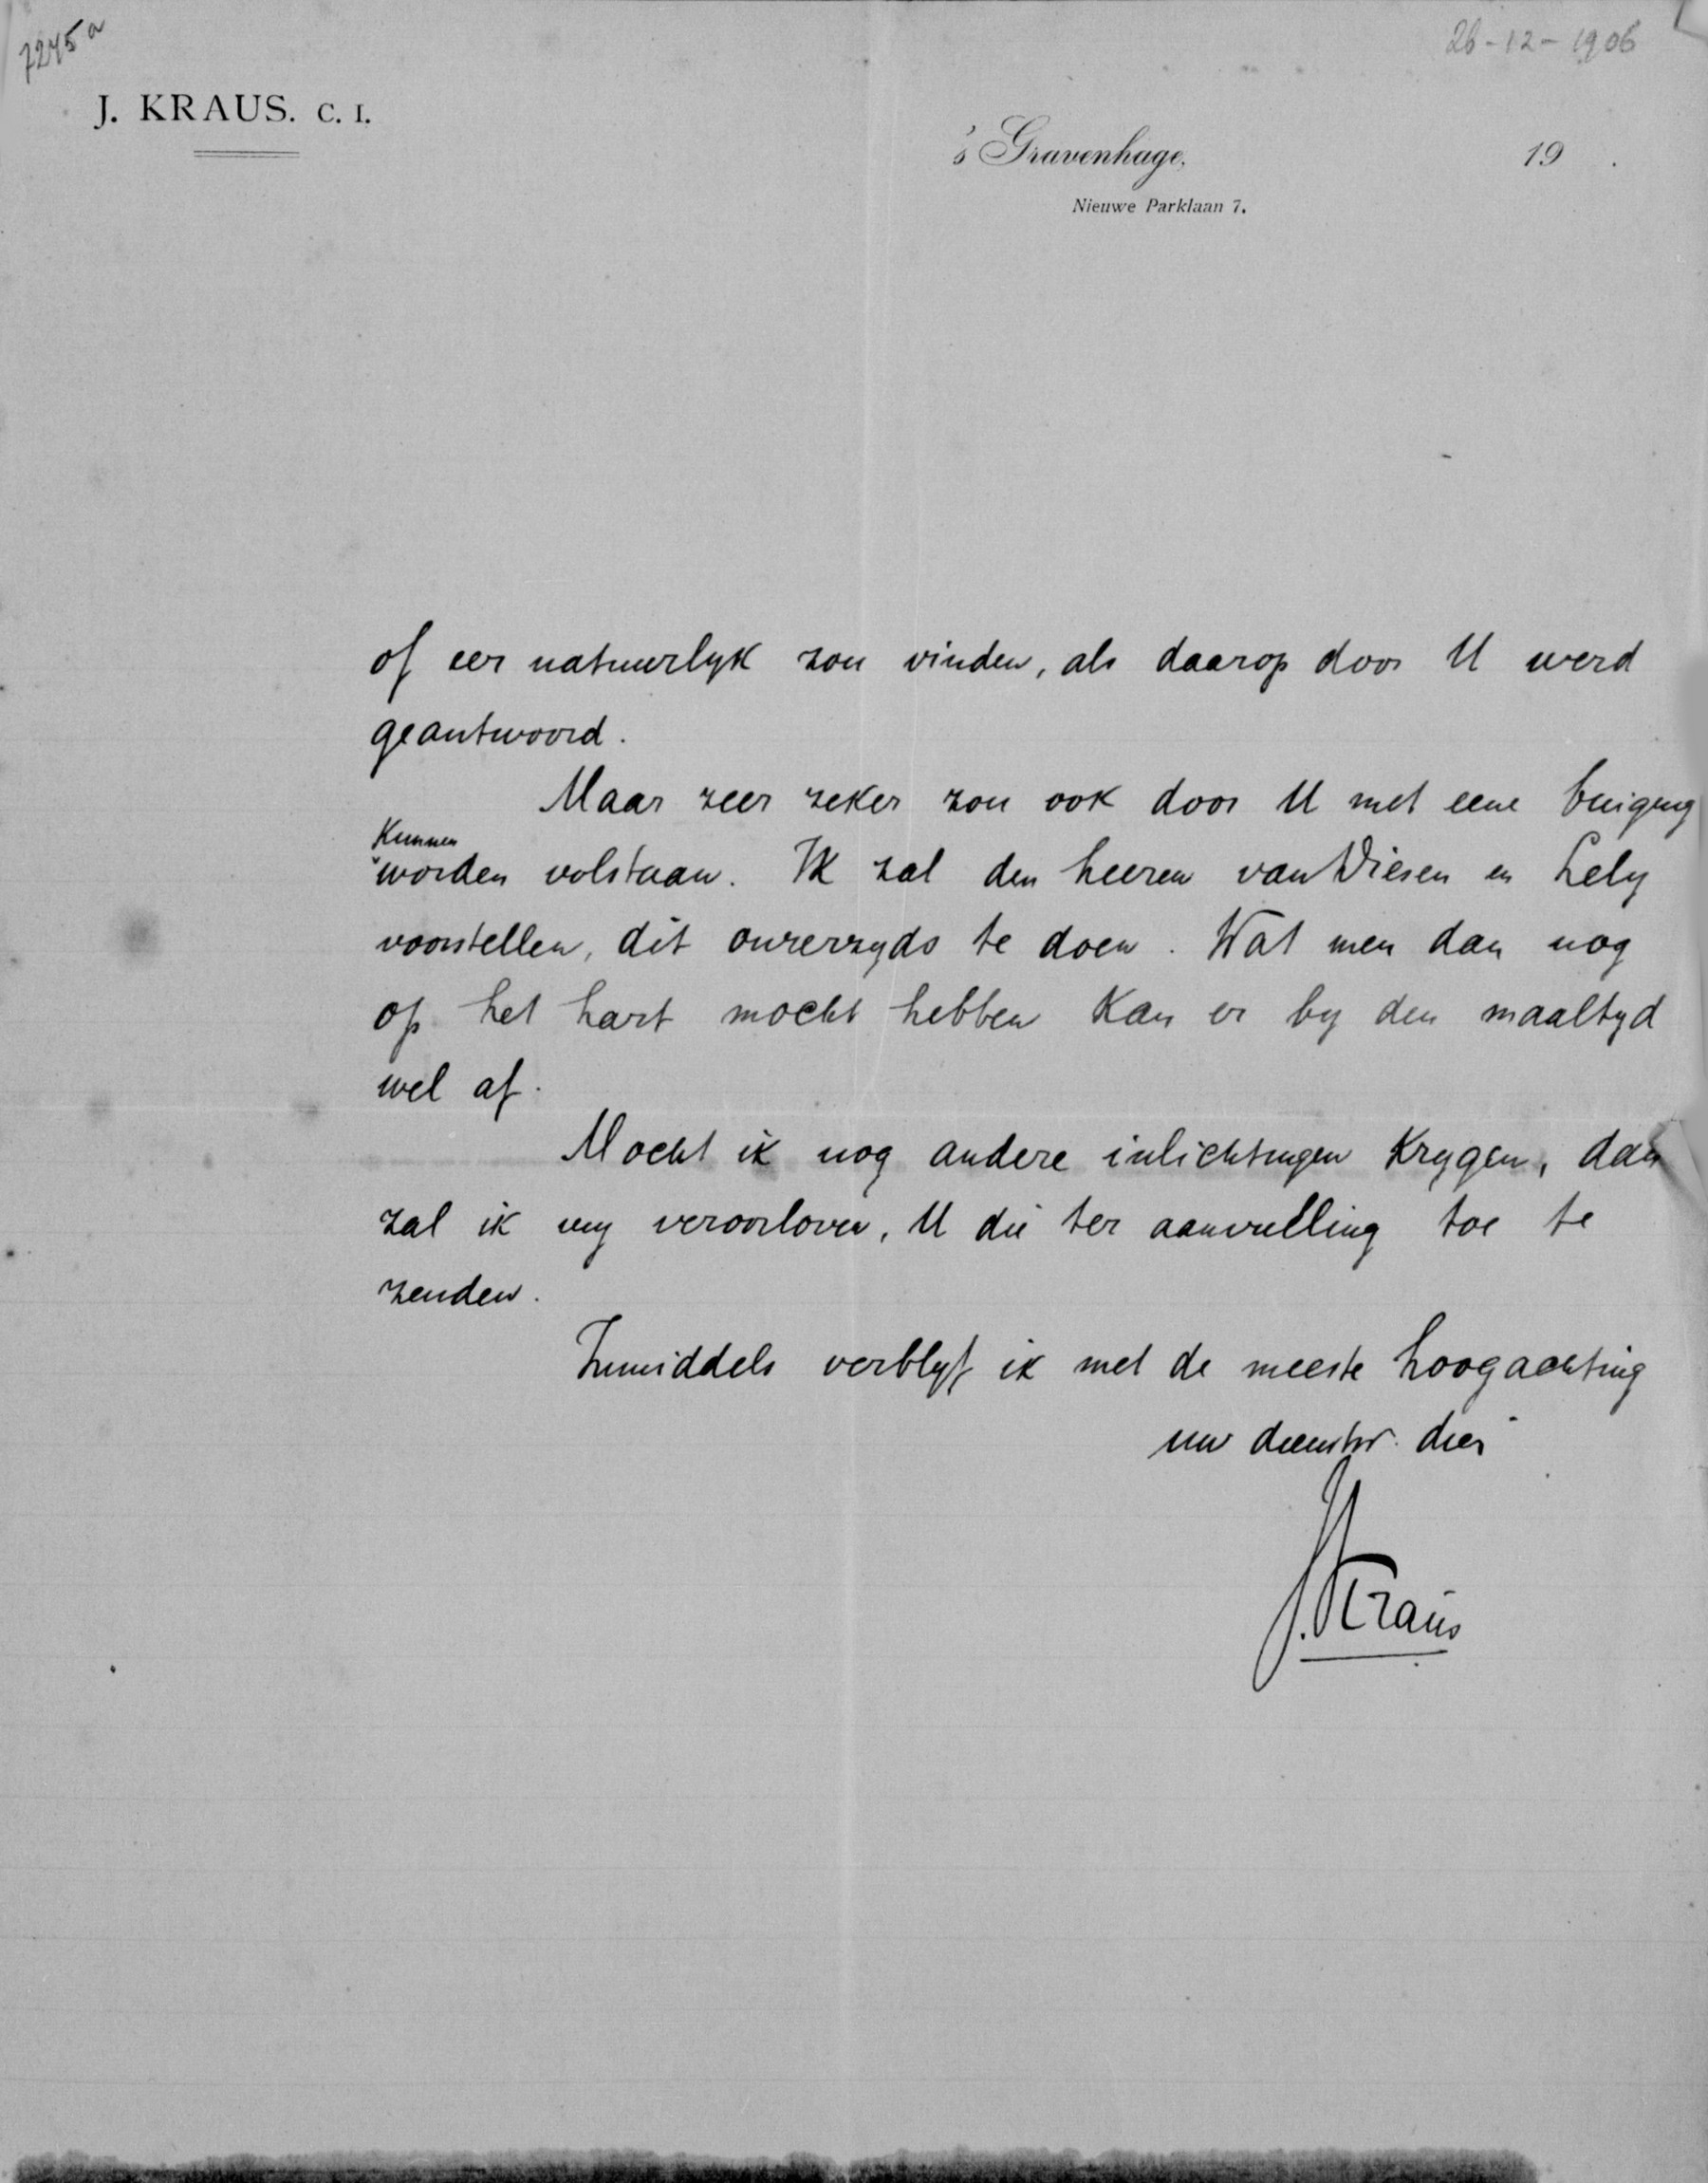 7245a
26-12-1906
J. KRAUS. C. I.
's Gravenhage, 19 .
Nieuwe Parklaan 7.
of eer natuurlyk zou vinden, als daarop door U werd
geantwoord.
Maar zeer zeker zou ook door U met eene buiging
Kunnen
worden volstaan. Ik zal den heeren van Diesen en Lely
voorstellen, dit onzerzyds te doen. Wat men dan nog
op het hart mocht hebben Kan er by den maaltyd
wel af.
Mocht ik nog andere inlichtingen Krygen, dan
zal ik my veroorloven, U die ter aanvulling toe te
zenden.
Inmiddels verblyf ik met de meeste hoogachting
uw dienstw. dien
J. Kraus